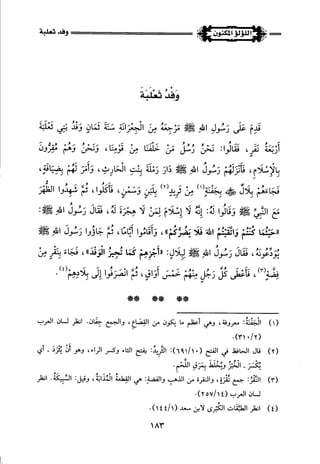 اللؤلؤ المكنون
وفد ثعلبة
وَفْدُ ثَعْلَبَةَ
قَدِمَ عَلَى رَسُولِ اللهِ ﷺ مَرْجِعَهُ مِنَ الْجِعْرَانَةِ سَنَةَ ثَمَانٍ وَفْدُ بَنِي ثَعْلَبَةَ
أَرْبَعَةُ نَفَرٍ، فَقَالُوا: نَحْنُ رُسُلُ مَنْ خَلْفَنَا مِنْ قَوْمِنَا، وَنَحْنُ وَهُمْ مُقِرُّونَ
بِالْإِسْلَامِ، فَأَنْزَلَهُمْ رَسُولُ اللهِ ﷺ دَارَ رَمْلَةَ بِنْتِ الْحَارِثِ، وَأَمَرَ لَهُمْ بِضِيَافَةٍ،
فَجَاءَهُمْ بِلَالٌ ﵁ بِجَفْنَةٍ(١) مِنْ ثَرِيدٍ(٢) بِلَبَنٍ وَسَمْنٍ، فَأَكَلُوا، ثُمَّ شَهِدُوا الظُّهْرَ
مَعَ النَّبِيِّ ﷺ وَقَالُوا لَهُ: إِنَّهُ لَا إِسْلَامَ لِمَنْ لَا هِجْرَةَ لَهُ، فَقَالَ رَسُولُ اللهِ ﷺ:
«حَيْثُمَا كُنْتُمْ وَاتَّقَيْتُمُ اللهَ فَلَا يَضُرُّكُمْ»، وَأَقَامُوا أَيَّامًا، ثُمَّ جَاؤُوا رَسُولَ اللهِ ﷺ
يُوَدِّعُونَهُ، فَقَالَ رَسُولُ اللهِ ﷺ لِبِلَالٍ: «أَجِزْهُمْ كَمَا تُجِيزُ الْوَفْدَ»، فَجَاءَ بِنُقَرٍ مِنْ
فِضَّةٍ(٣)، فَأَعْطَى كُلَّ رَجُلٍ مِنْهُمْ خَمْسَ أَوَاقٍ، ثُمَّ انْصَرَفُوا إِلَى بِلَادِهِمْ(٤).
** ** **
(١) الْجَفْنَةُ: معروفة، وهي أعظم ما يكون من القِصَاعِ، والجمع جِفَان. انظر لسان العرب
(٣١٠/٢).
(٢) قال الحافظ في الفتح (٦٩١/١٠): الثَّرِيدُ: بفتح الثاء وكسر الراء، وهو أَنْ يُثْرَدَ - أي
يُكْسَرَ - الْخُبْزُ وَيُخْلَطَ بِمَرَقِ اللَّحْمِ.
(٣) النُّقَرُ: جمع نُقْرَة، والنقرة من الذهب والفضة: هي القِطعةُ الْمُذَابَةُ، وقيل: السَّبِيكَةُ. انظر
لسان العرب (٢٥٧/١٤).
(٤) انظر الطَّبَقَات الكُبْرى لابن سعد (١٤٤/١).
١٨٣